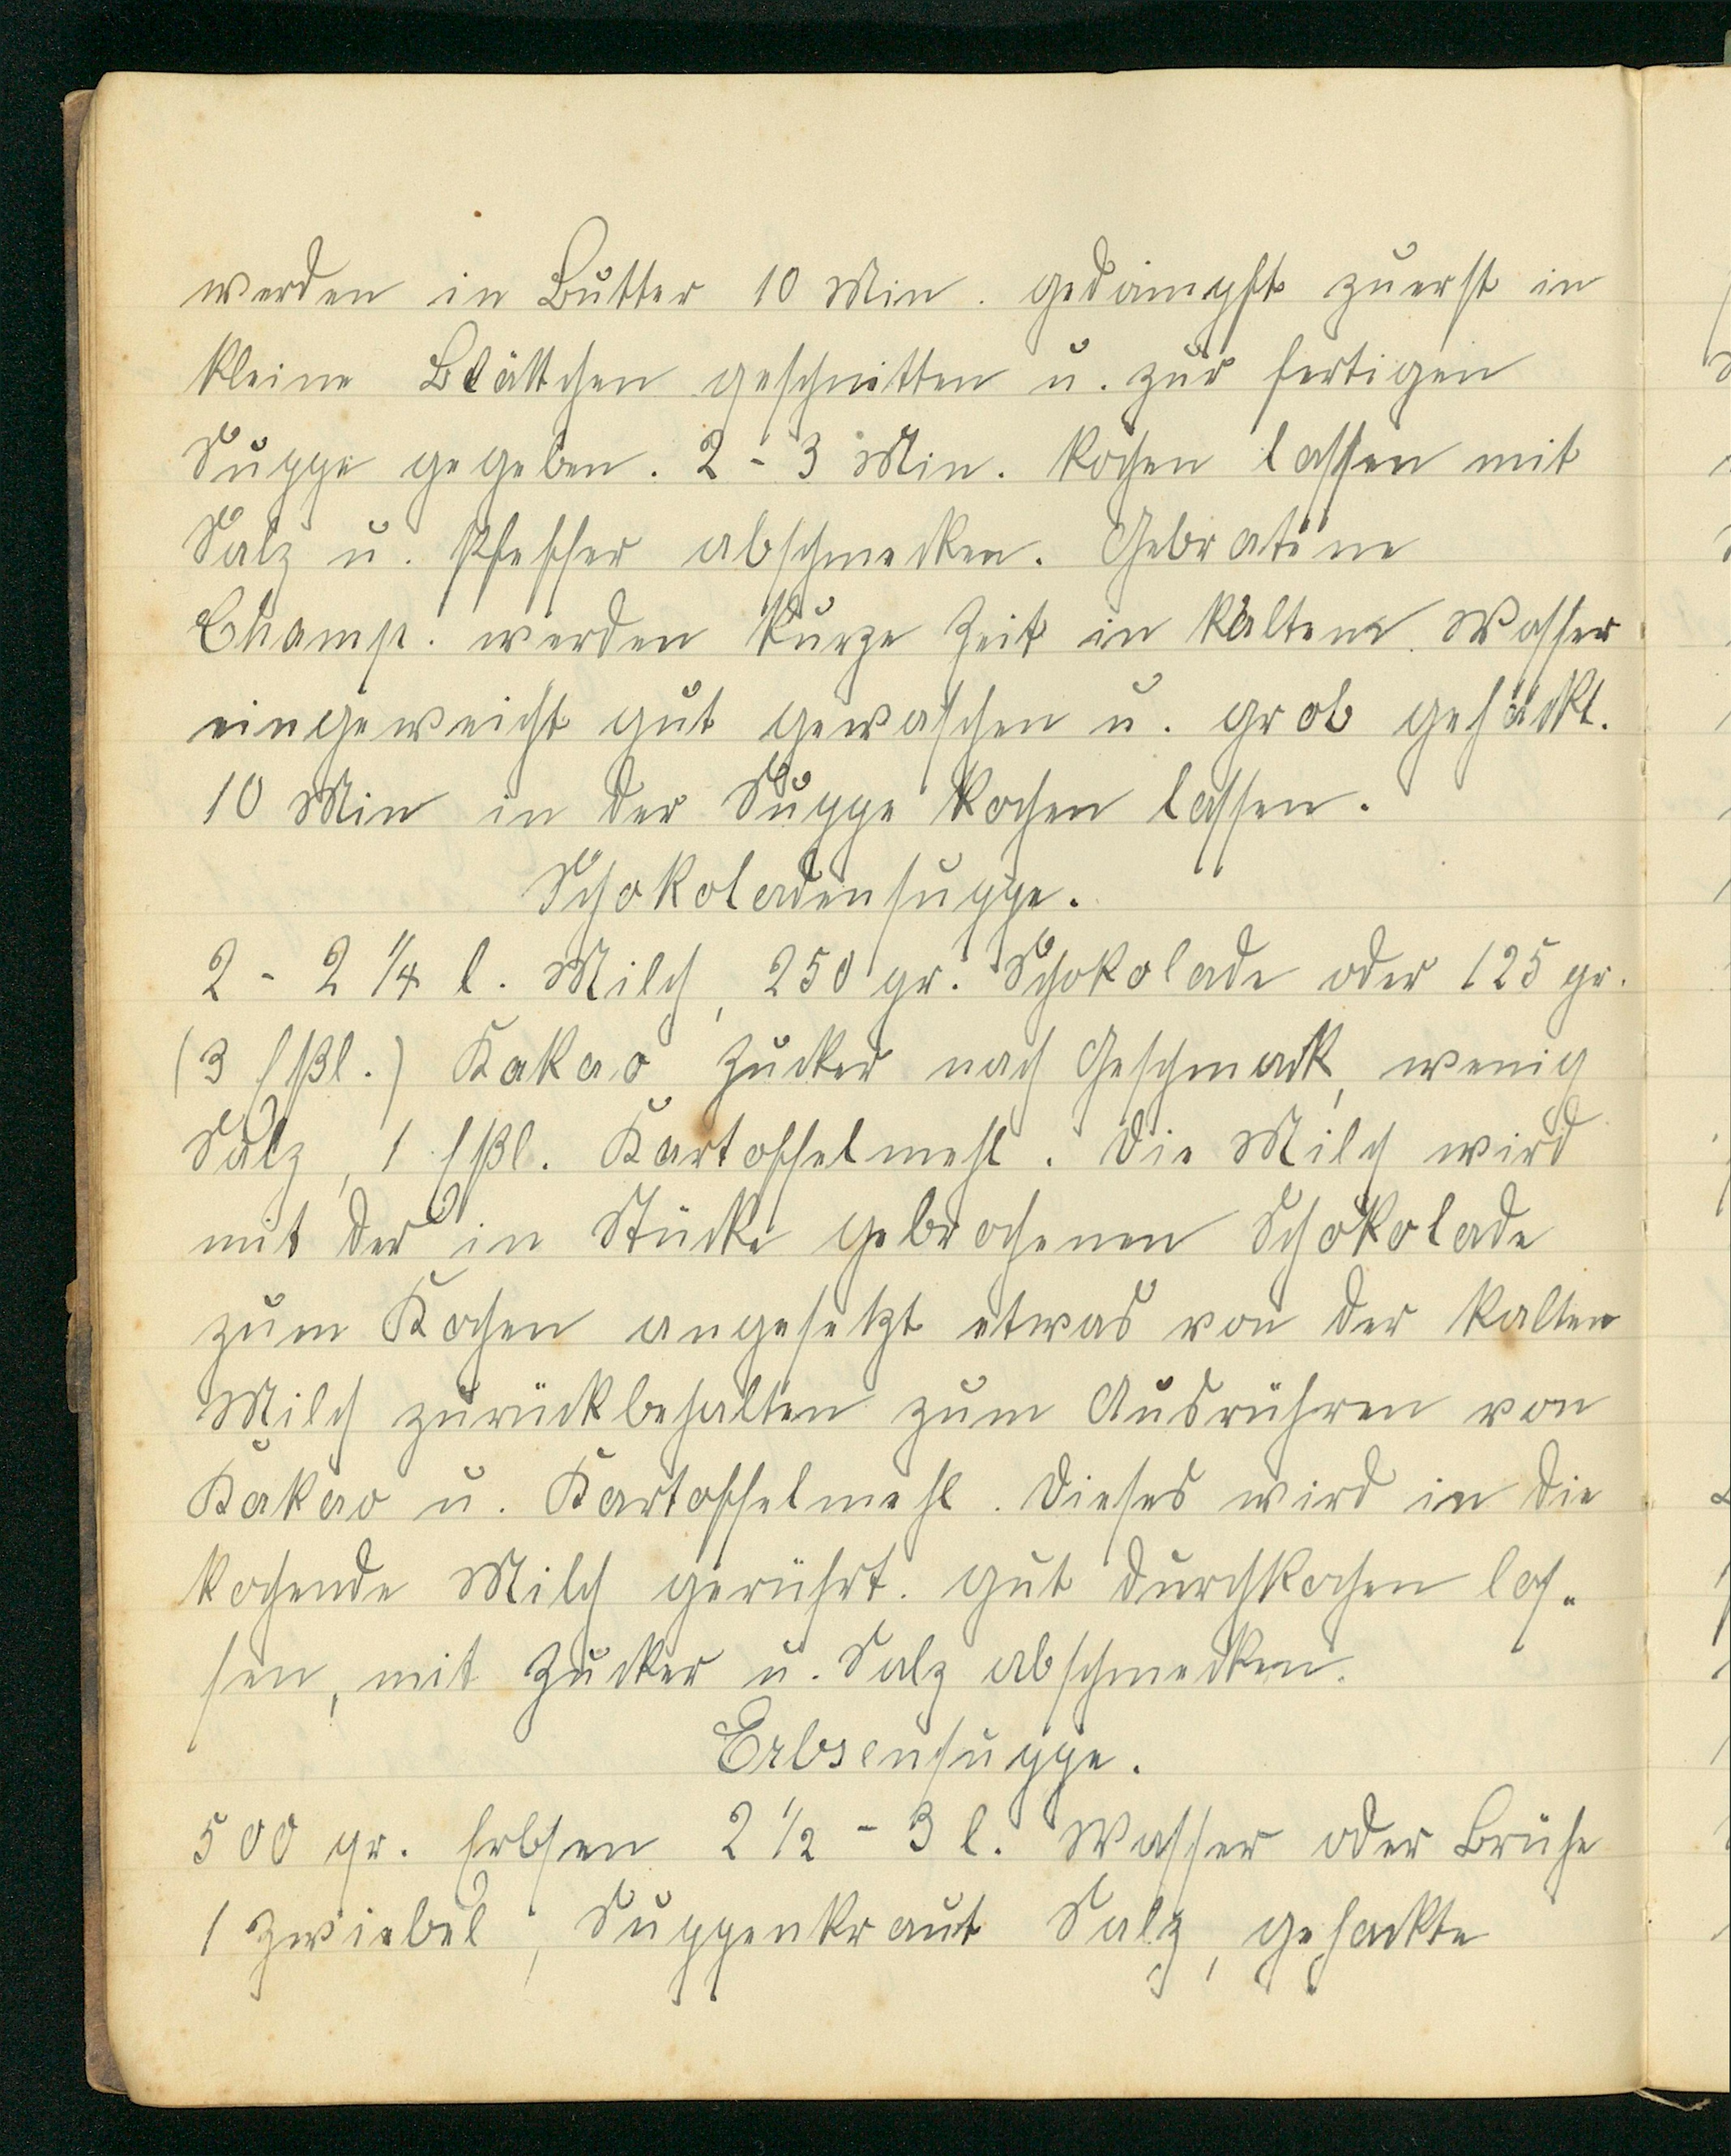 werden in Butter 10 Min. gedämpft zuerst in
kleine Blättchen geschnitten u. zur fertigen
Suppe gegeben. 2 - 3 Min. kochen lassen mit
Salz u. Pfeffer abschmecken. Gebratene
Champ. werden kurze Zeit in kaltem Wasser
eingeweicht gut gewaschen u. grob gehackt.
10 Min in der Suppe kochen lassen.
Schokoladensuppe.
2 - 2 1/4 l. Milch, 250 gr. Schokolade oder 125 gr.
(3 Eßl.) Kakao Zucker nach Geschmack, wenig
Salz, 1 Eßl. Kartoffelmehl. Die Milch wird
mit der in Stücke gebrochenen Schokolade
zum Kochen angesetzt etwas von der kalten
Milch zurückbehalten zum Ausrühren von
Kakao u. Kartoffelmehl. Dieses wird in die
kochende Milch gerührt. gut durchkochen las-
sen, mit Zucker u. Salz abschmecken.
Erbsensuppe.
500 gr. Erbsen 2 1/2 - 3 l. Wasser oder Brühe
1 Zwiebel, Suppenkraut Salz, gehackte